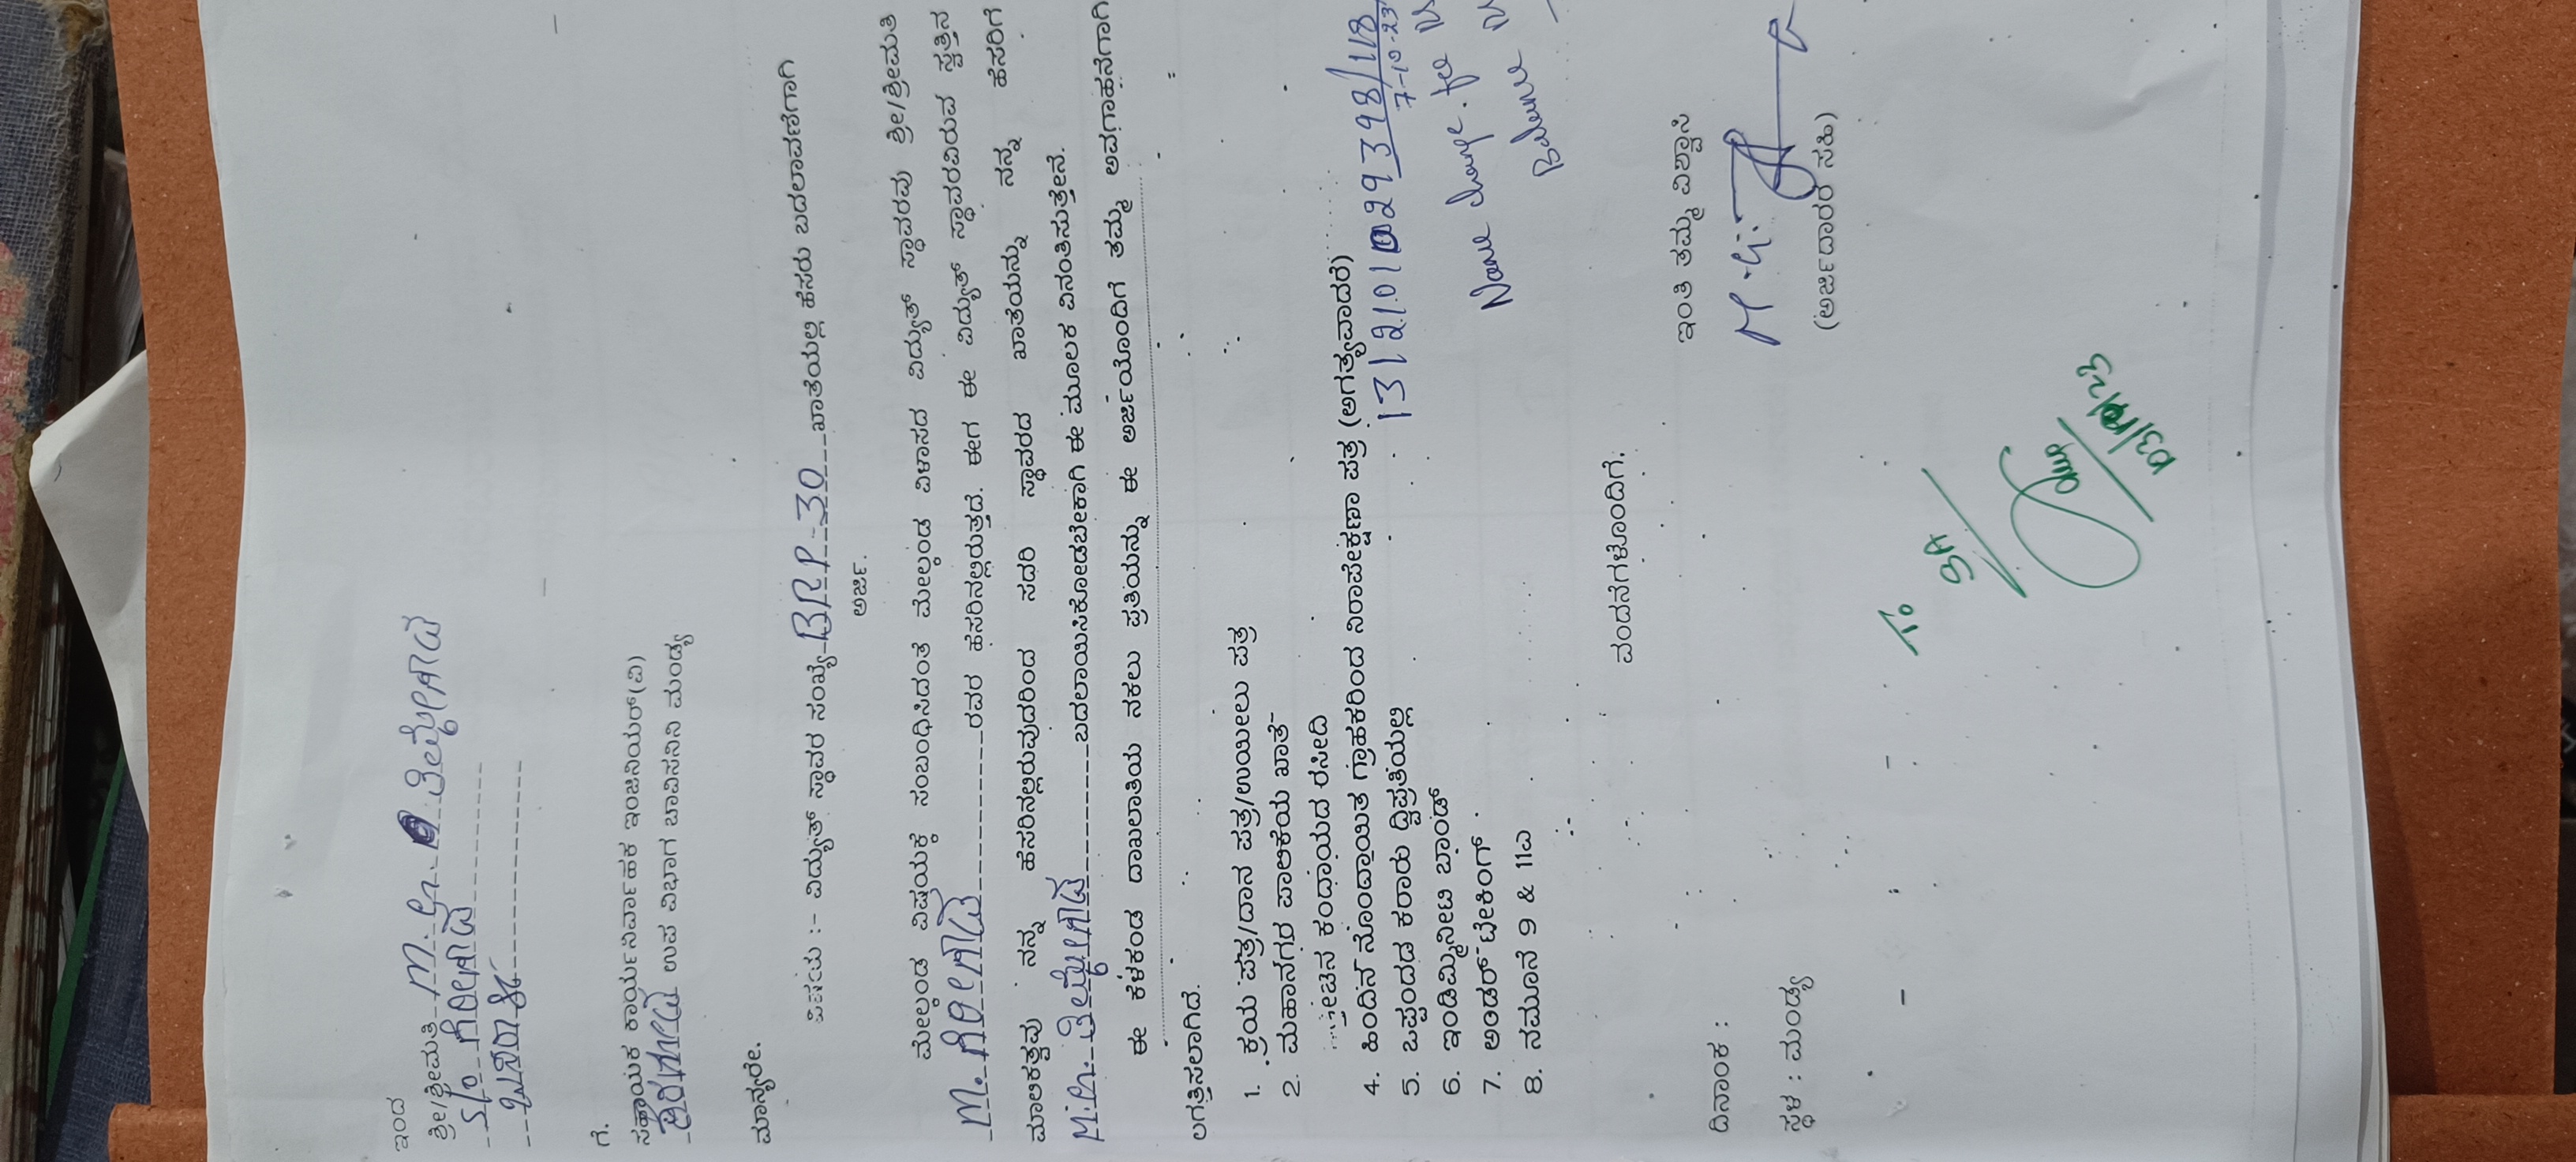 ಇಂದ
ಶ್ರೀ/ಶ್ರೀಮತಿ M. ಶಿಲ್ಪೇಗೌಡ
S/o ಗಿರೀಗೌಡ
ಬಸರಾಳು
ಗೆ.
ಸಹಾಯಕ ಕಾರ್ಯನಿರ್ವಾಹಕ ಇಂಜಿನಿಯರ್(ವಿ)
ಉಪ ವಿಭಾಗ ಚಾವಿಸನಿನಿ ಮಂಡ್ಯ
ಮಾನ್ಯರೇ.
ವಿಷಯ :- ವಿದ್ಯುತ್ ಸ್ಥಾವರ ಸಂಖ್ಯೆ BRP-30 ಖಾತೆಯಲ್ಲಿ ಹೆಸರು ಬದಲಾವಣೆಗಾಗಿ
ಅರ್ಜಿ.
ಮೇಲ್ಕಂಡ ವಿಷಯಕ್ಕೆ ಸಂಬಂಧಿಸಿದಂತೆ ಮೇಲ್ಕಂಡ ವಿಳಾಸದ ವಿದ್ಯುತ್ ಸ್ಥಾವರವು ಶ್ರೀ/ಶ್ರೀಮತಿ
M. ಗಿರೀಗೌಡ ರವರ ಹೆಸರಿನಲ್ಲಿರುತ್ತದೆ. ಈಗ ಈ ವಿದ್ಯುತ್ ಸ್ಥಾವರವಿರುವ ಸ್ವತ್ತಿನ
ಮಾಲೀಕತ್ವವು ನನ್ನ ಹೆಸರಿನಲ್ಲಿರುವುದರಿಂದ ಸದರಿ ಸ್ಥಾವರದ ಖಾತೆಯನ್ನು ನನ್ನ ಹೆಸರಿಗೆ
ಬದಲಾಯಿಸಿಕೊಡಬೇಕಾಗಿ ಈ ಮೂಲಕ ವಿನಂತಿಸುತ್ತೇನೆ.
ಈ ಕೆಳಕಂಡ ದಾಖಲಾತಿಯ ನಕಲು ಪ್ರತಿಯನ್ನು ಈ ಅರ್ಜಿಯೊಂದಿಗೆ ತಮ್ಮ ಅವಗಾಹನೆಗಾಗಿ
ಲಗತ್ತಿಸಲಾಗಿದೆ.
1. ಕ್ರಯ ಪತ್ರ/ದಾನ ಪತ್ರ/ಉಯಿಲು ಪತ್ರ
2. ಮಹಾನಗರ ಪಾಲಿಕೆಯ ಖಾತೆ
ಕಂದಾಯದ ರಸೀದಿ
4. ಹಿಂದಿನ ನೊಂದಾಯಿತ ಗ್ರಾಹಕರಿಂದ ನಿರಾಪೇಕ್ಷಣಾ ಪತ್ರ (ಅಗತ್ಯವಾದರೆ)
5. ಒಪ್ಪಂದದ ಕರಾರು ದ್ವಿಪ್ರತಿಯಲ್ಲಿ
6. ಇಂಡಿಮ್ನಿನೀಟಿ ಬಾಂಡ್
7. ಅಂಡರ್ ಟೇಕಿಂಗ್
8. ನಮೂನೆ 9 & 11ಎ
7-10-23
Name change. fee
Balance
ವಂದನೆಗಳೊಂದಿಗೆ.
ಇಂತಿ ತಮ್ಮ ವಿಶ್ವಾಸಿ
(ಅರ್ಜಿದಾರರ ಸಹಿ)
ದಿನಾಂಕ :
ಸ್ಥಳ : ಮಂಡ್ಯ
To
SA